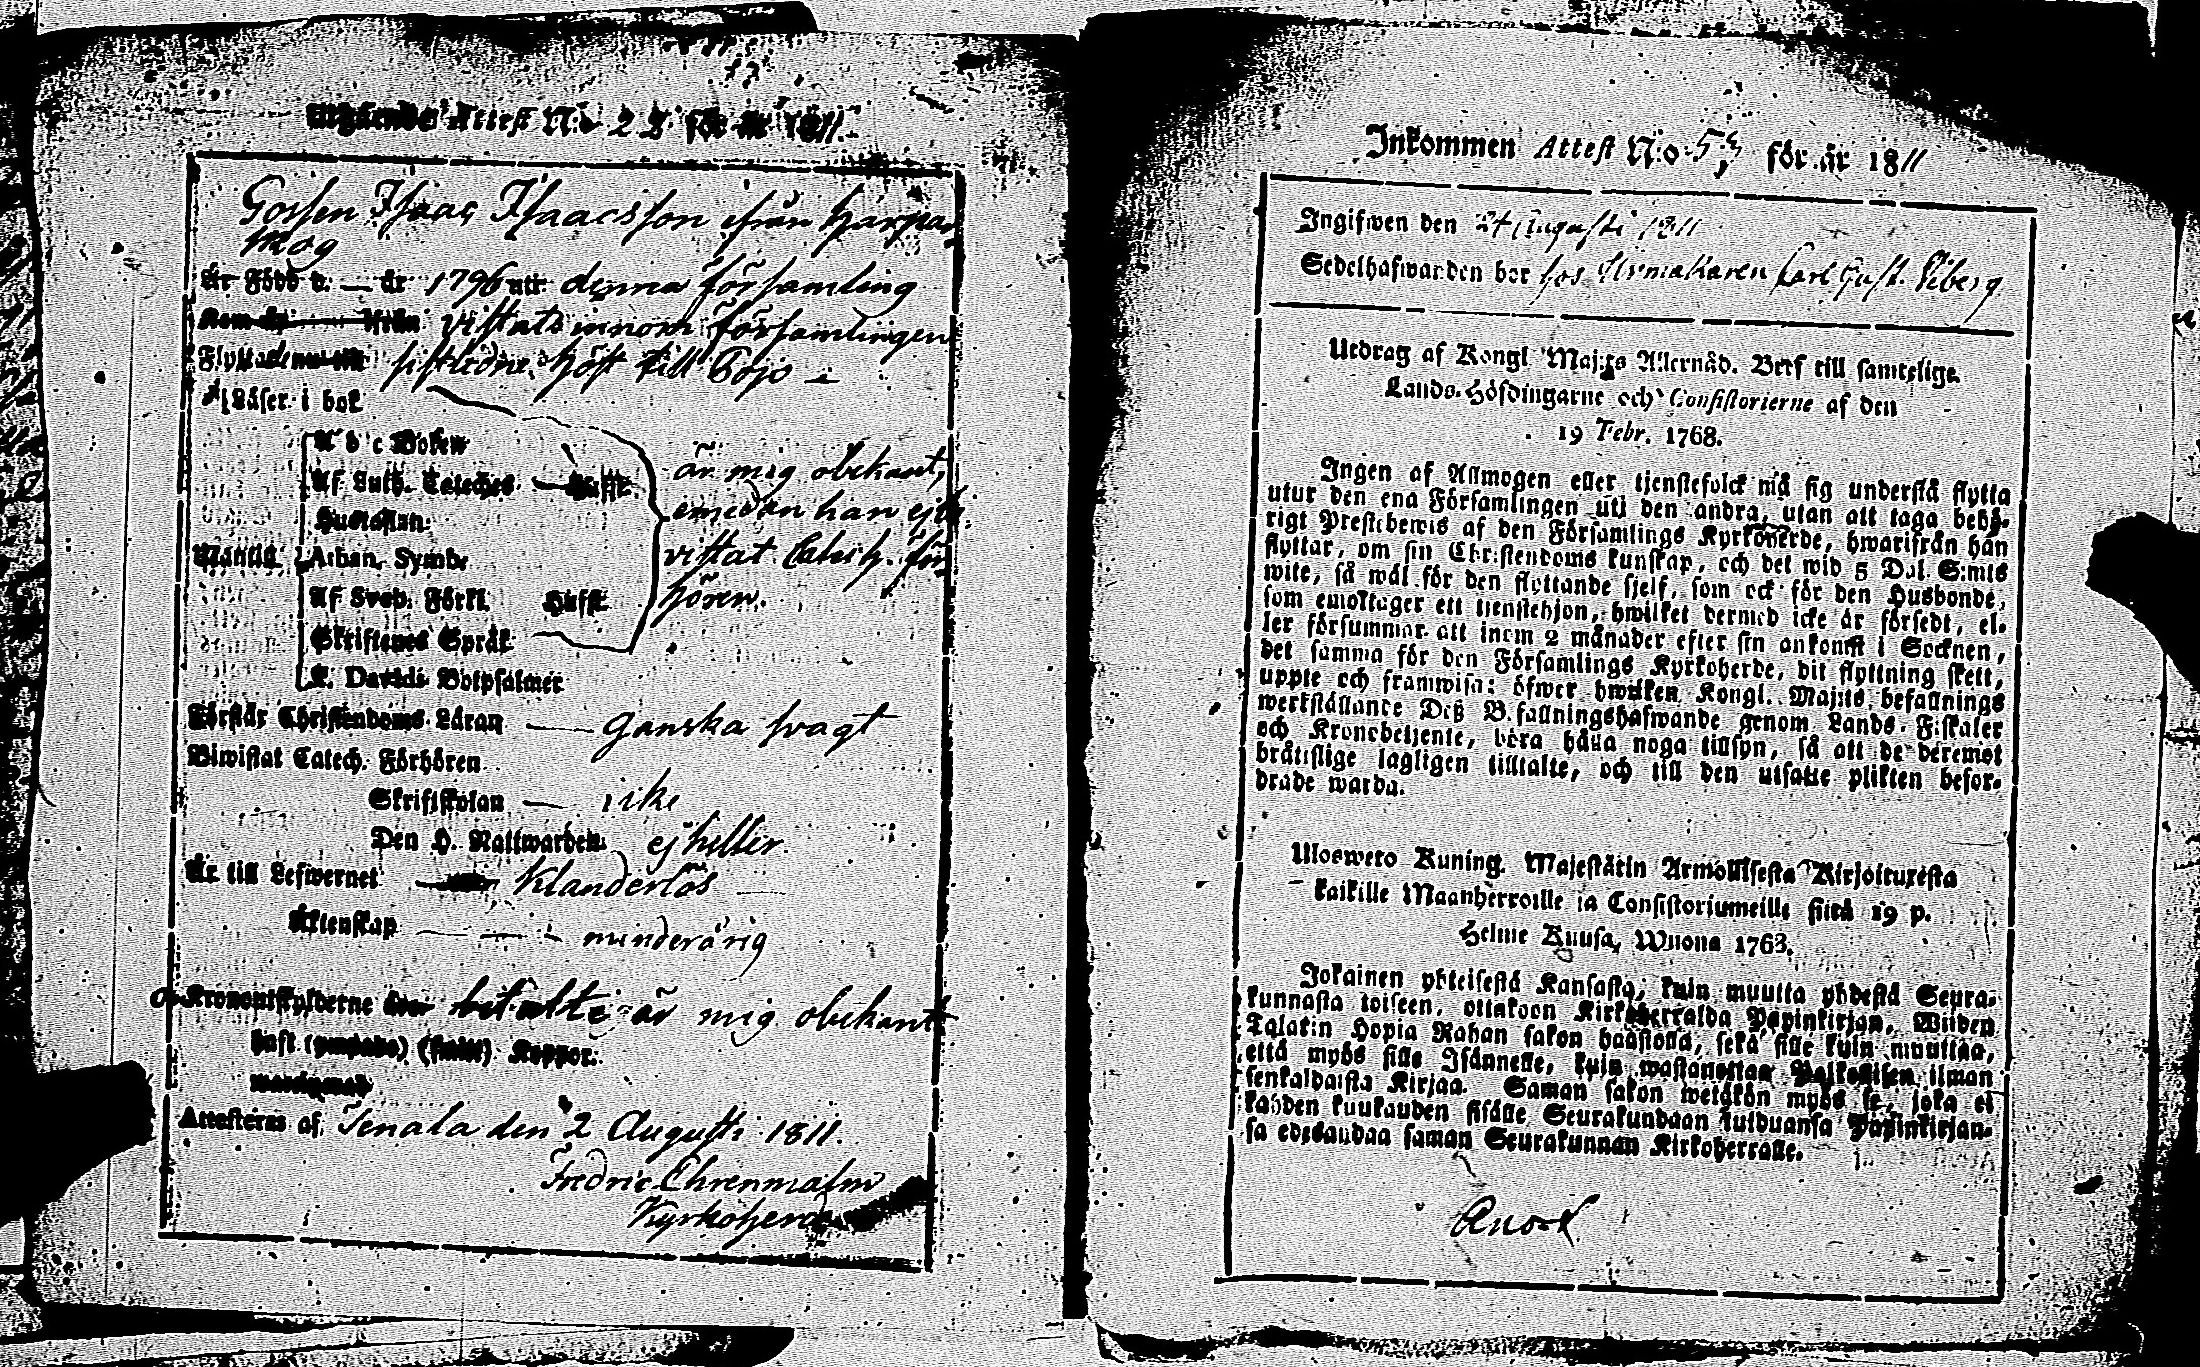 Utgående Attest N:o 22 för år 1811.
Gossen Isaac Isaacsson ifrån Harpar
skog
Är Född d. — år 1796 utr denna församling
vistats innom församlingen
Flyttade nu till sistledne höst till Pojo —
Läser i bok
A b c Boken
Af Luth. Cateches
är mig obekant,
Hustaflan.
emedan han ej bi
Utantill Athan. Symb.
vistat Catech. för
Af Sveb. Förkl. Hufst.
hören.
Skriftenes Språk
K. Davids Botpsalmer
Förstår Christendoms Läran — ganska svagt
Biwistat Catech. Förhören
Skriftskolan — icke
Den H. Nattwarden ej heller.
Är till Lefwernet Klanderlös
Äktenskap — minderårig
Kronoutskylderne betalte är mig obekant
Haft Koppor.
Attesteras af Tenala den 2 Augusti 1811.
Fredric Ehrenmalm
Kyrkoherde
Inkommen Attest N:o 53 för år 1811
Ingifwen den 24 Augusti 1811
Sedelhafwanden bor hos Urmakaren Carl Gust.
Utdrag af Kongl Maj:ts Allernåd. Bref till samtelige
Lands-Höfdingarne och Consistorierne af den
19 Febr. 1768.
Ingen af Allmogen eller tjenstefolck må sig understå flytta
utur den ena Församlingen uti den andra, utan att taga behö-
rigt Prestebewis af den Församlings Kyrkoherde, hwarifrån han
flyttar, om sin Christendoms kunskap, och det wid 5 Dal. S:mts
wite, så wäl för den flyttande sjelf, som ock för den Husbonde,
som emottager ett tjenstehjon, hwilket dermed icke är försedt, el-
ler försummar att inom 2 månader efter sin ankomst i Socknen,
det samma för den Församlings Kyrkoherde, dit flyttning skett,
uppte och framwisa: öfwer hwilken Kongl. Maj:ts befallnings
werkställande Deß Befallningshafwande genom Lands-Fiskaler
och Kronobetjente, böra hålla noga tillsyn, så att de deremot
bråttslige lagligen tilltalte, och till den utsatte plikten befor-
drade warda.
Uloswero Kuning. Majestätin Armollisesta Kirjoituxesta
kaikille Maanherroille ja Consistoriumeille siitä 19 p.
Helme Kuusa, Wuona 1763.
Jokainen yhteisestä Kansasta, kuin muutta yhdestä Seura-
kunnasta toiseen, ottakoon Kirkkoherralda Papinkirjan. Wiiden
Talarin Hopia Rahan sakon haastolla, sekä sille kuin muuttaa,
että myös sille Isännelle, kuin wastanottaa Palkollisen ilman
senkaldaista Kirjaa. Saman sakon wetäkön myös se, joka ei
kahden kuukauden sisälle Seurakundaan tulduansa Papinkirjan-
sa edesandaa saman Seurakunnan Kirkoherralle.